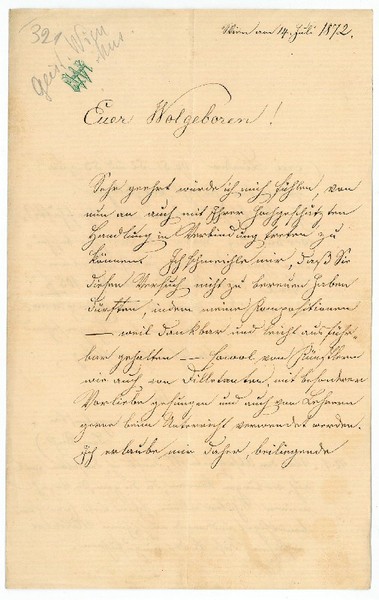 321
Wien
Wien am 14. Juli 1872.
Euer Wolgeboren!
Sehr geehrt würde ich mich fühlen, von
nun an auch mit Ihrer hochgeschätzten
Handlung in Verbindung treten zu
können. Ich schmeichle mir, daß Sie
diesen Versuch nicht zu bereuen haben
dürften, indem meine Kompositionen
— weil dankbar und leicht ausführ-
bar gehalten — sowol von Künstlern
wie auch von Dilletanten, mit besonderer
Vorliebe gesungen und auch von Lehrern
gerne beim Unterricht verwendet werden.
Ich erlaube mir daher, beiliegende